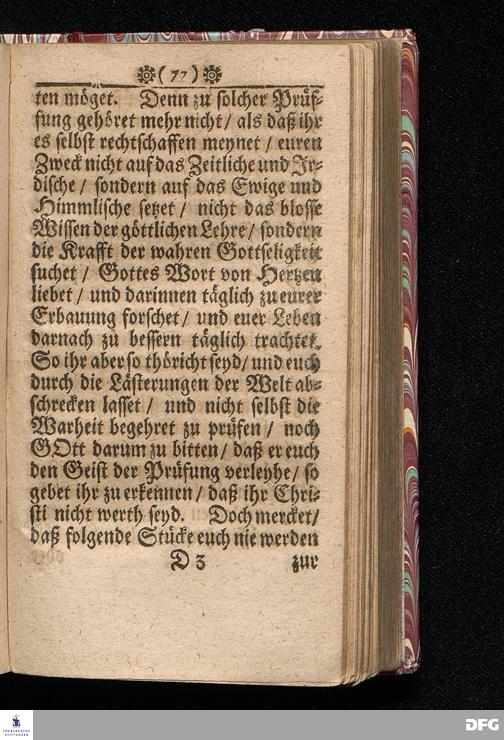 ( 77 )
ten möget. Denn zu solcher Prüf-
fung gehöret mehr nicht / als daß ihr
es selbst rechtschaffen meynet / euren
Zweck nicht auf das Zeitliche und Ir-
dische / sondern auf das Ewige und
Himmlische setzet / nicht das blosse
Wissen der göttlichen Lehre / sondern
die Krafft der wahren Gottseligkeit
suchet / Gottes Wort von Hertzen
liebet / und darinnen täglich zu eurer
Erbauung forschet / und euer Leben
darnach zu bessern täglich trachtet.
So ihr aber so thöricht seyd / und euch
durch die Lästerungen der Welt ab-
schrecken lasset / und nicht selbst die
Warheit begehret zu prüfen / noch
GOtt darum zu bitten / daß er euch
den Geist der Prüfung verleyhe / so
gebet ihr zu erkennen / daß ihr Chri-
sti nicht werth seyd. Doch mercket /
daß folgende Stücke euch nie werden
D 3 zur
FRANCKESCHE
STIFTUNGEN
DFG